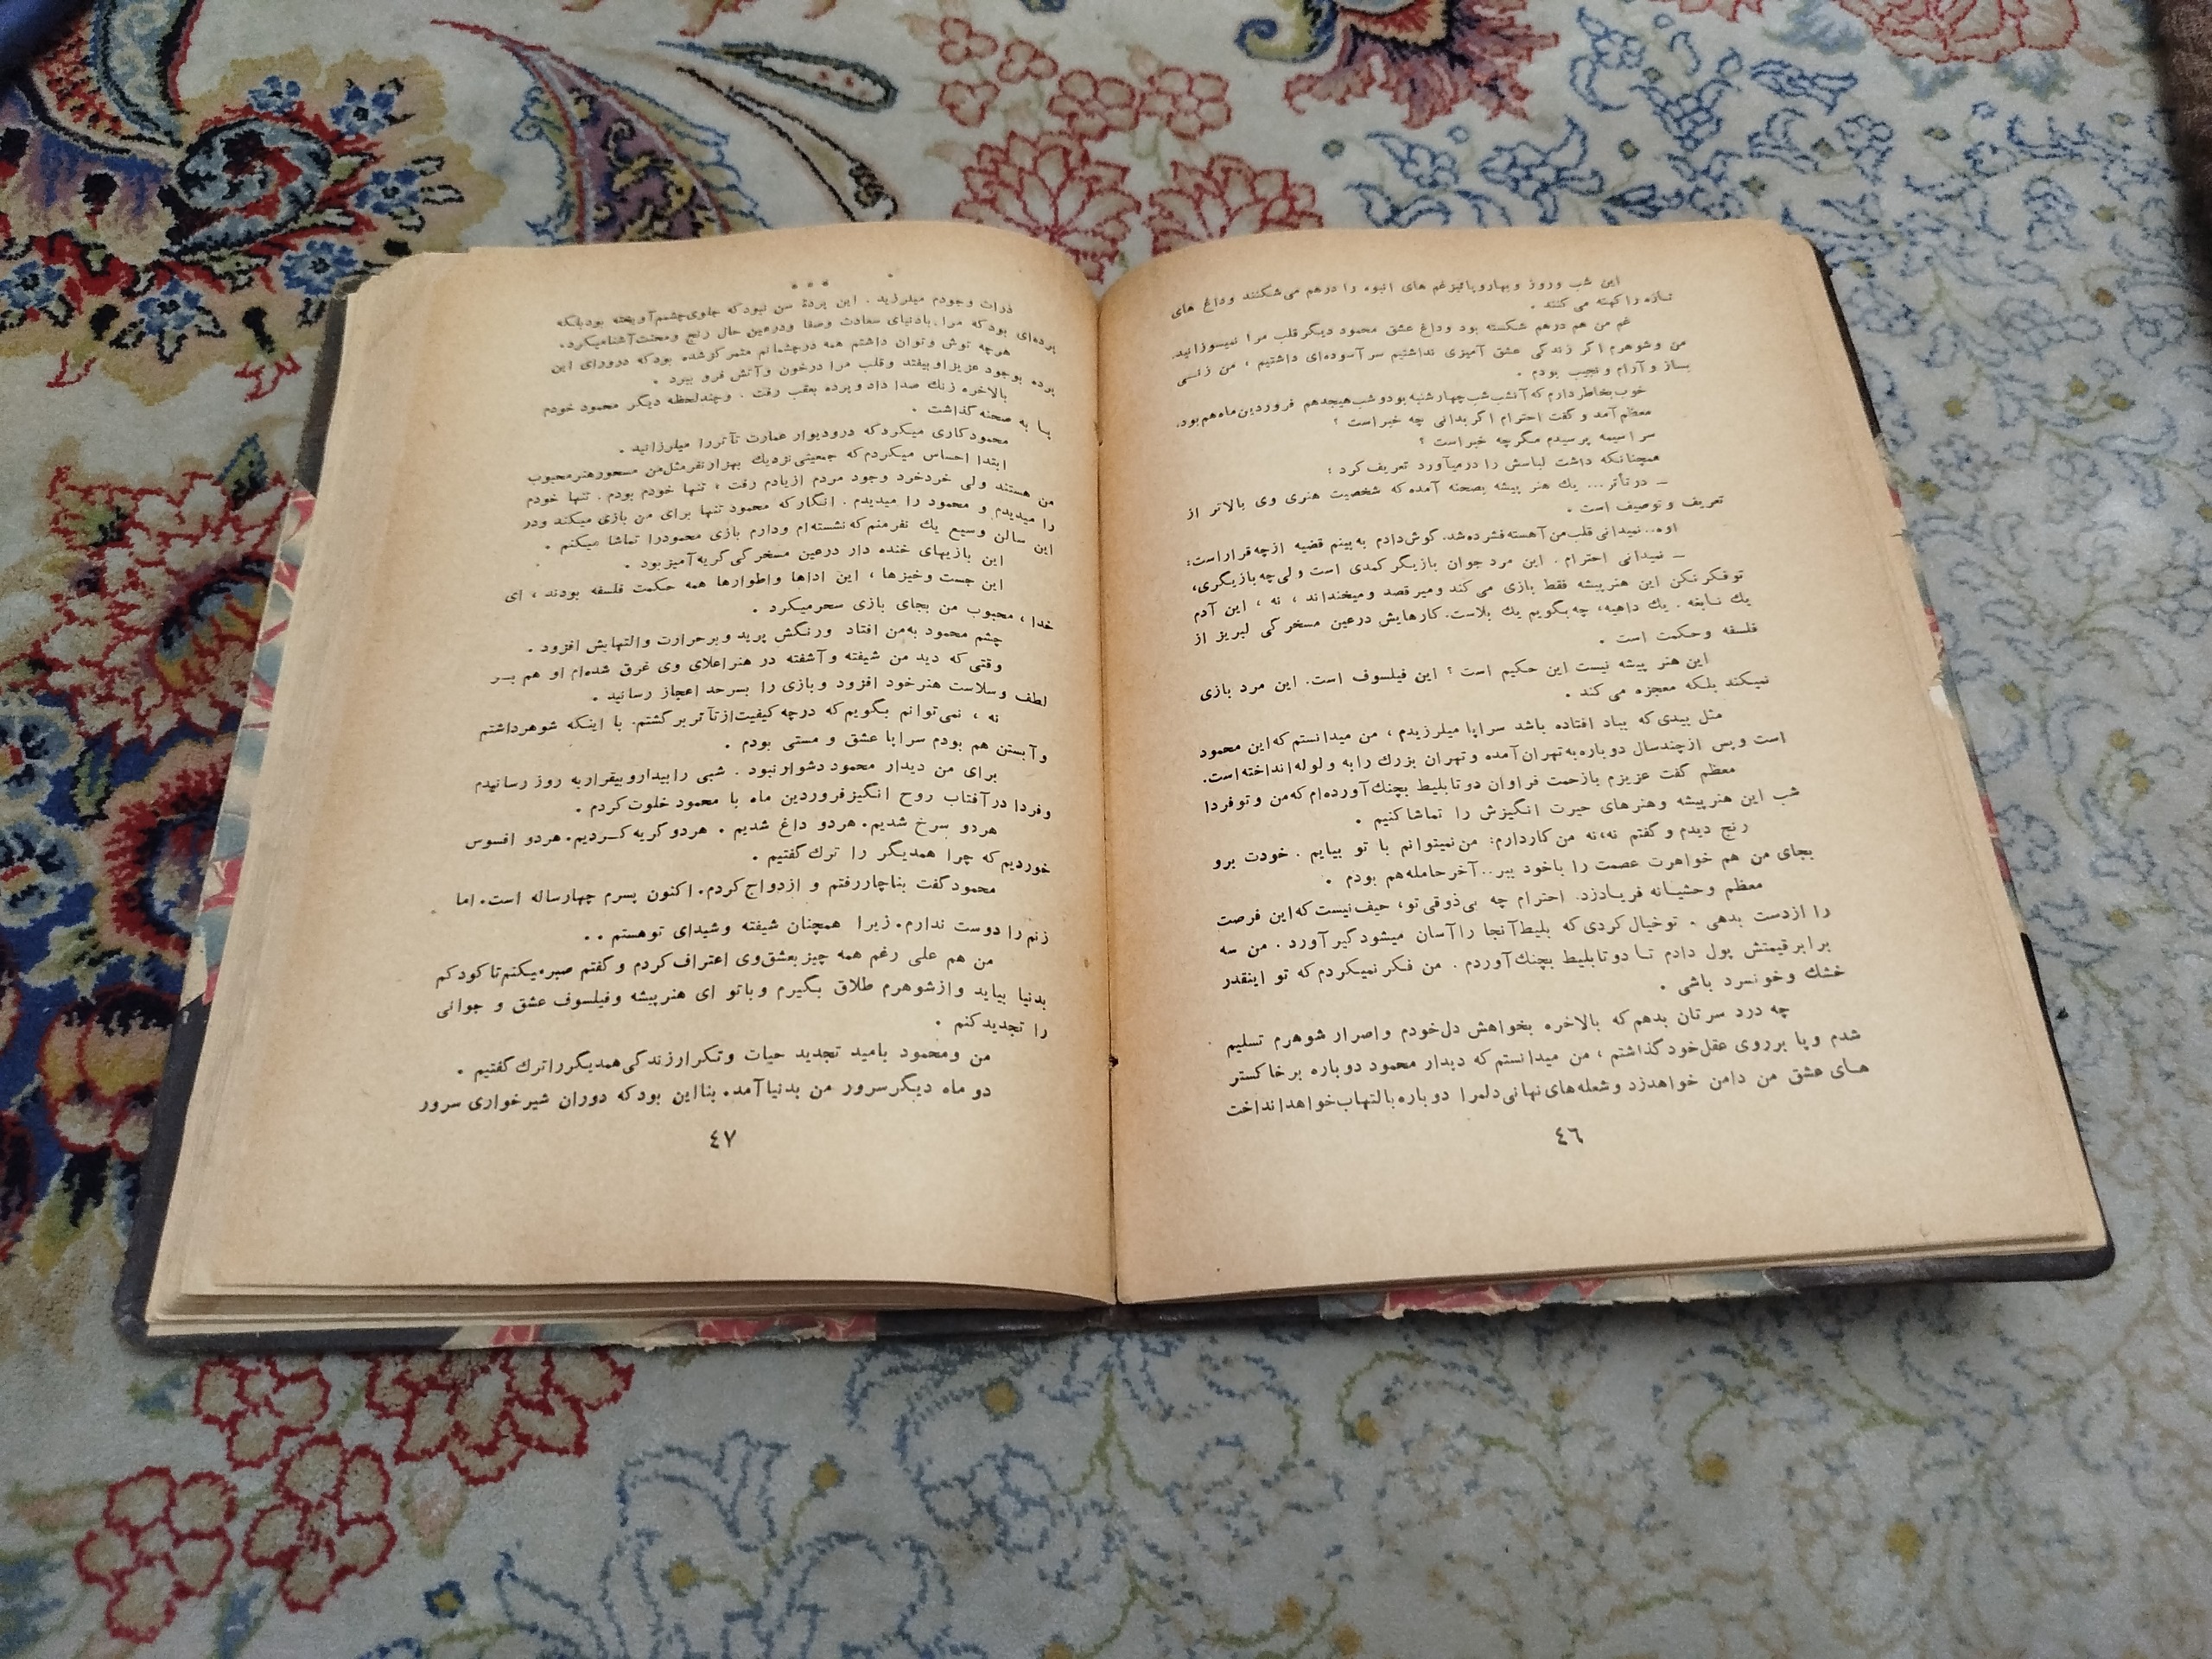 این شب وروز و بهار و پائیز غم های انبوه را درهم می‌شکنند وداغ های
تازه را کهنه می کنند .
غم من هم درهم شکسته بود وداغ عشق محمود دیگر قلب مرا نمیسوزانید.
من وشوهرم اگر زندگی عشق آمیزی نداشتیم سر آسوده‌ای داشتیم ، من زنـی
بساز و آرام و نجیب بودم .
خوب بخاطر دارم که آنشب شب چهارشنبه بود و شب هیجدهم فروردین ماه هم بود.
معظم آمد و گفت احترام اگر بدانی چه خبر است ؟
سر اسیمه پرسیدم مگر چه خبر است ؟
همچنانکه داشت لباسش را درمیآورد تعریف کرد :
ـ در تآتر ... یك هنر پیشه بصحنه آمده که شخصیت هنری وی بالاتر از
تعریف و توصیف است .
اوه.. نمیدانی قلب من آهسته فشرده شد. گوش دادم به بینم قضیه ازچه قرار است:
ـ نمیدانی احترام . این مرد جوان بازیگر کمدی است و لی چه بازیگری،
تو فکر نکن این هنرپیشه فقط بازی می کند ومیرقصد ومیخنداند ، نه ، این آدم
یك نـابغه . یك داهیه، چه بگویم یك بلاست. کارهایش درعین مسخرگی لبریز از
فلسفه وحکمت است .
این هنر پیشه نیست این حکیم است ؟ این فیلسوف است. این مرد بازی
نمیکند بلکه معجزه می کند .
مثل بیدی که بباد افتاده باشد سراپا میلرزیدم ، من میدانستم که این محمود
است و پس ازچندسال دوباره به تهران آمده و تهران بزرك را به و لوله انداخته است.
معظم گفت عزیزم بازحمت فراوان دوتا بلیط بچنك آورده‌ام که من و تو فردا
شب این هنرپیشه وهنرهای حیرت انگیزش را تماشا کنیم .
رنج دیدم و گفتم نه،نه من کار دارم: من نمیتوانم با تو بیایم . خودت برو
بجای من هم خواهرت عصمت را باخود ببر.. آخر حامله هم بودم .
معظم وحشیـانه فریـاد زد. احترام چه بی ذوقی تو، حیف نیست که این فرصت
را ازدست بدهی . تو خیال کردی که بلیط آنجا را آسان میشود گیر آورد . من سه
برابر قیمتش پول دادم تـا دوتا بلیط بچنك آوردم . من فـکر نمیکردم که تو اینقدر
خشك وخونسرد باشی .
چه درد سرتان بدهم که بالاخره بخواهش دل خودم و اصرار شوهرم تسلیم
شدم و پا برروی عقل خود گذاشتم ، من میدانستم که دیدار محمود دوباره برخاکستر
هـای عشق من دامن خواهدزد و شعله های نهانی دلمرا دو باره بالتهاب خواهد انداخت
٤٦
* * *
ذرات وجودم میلرزید . این پردهٔ سن نبود که جلوی چشمم آویخته بود بلکه
پرده‌ای بود که مرا ، بادنیای سعادت وصفا ودرعین حال رنج ومحنت آشنا میکرد.
هرچه توش وتوان داشتم همه درچشمانم متمرکز شده بود که درورای این
پرده بوجود عزیز او بیفتد وقلب مرا درخون وآتش فرو ببرد .
بالاخره زنك صدا داد و پرده بعقب رفت . وچند لحظه دیگر محمود خودم
پـا به صحنه گذاشت .
محمود کاری میکرد که درودیوار عمارت تآتر را میلرزانید .
ابتدا احساس میکردم که جمعیتی نزدیك بهزار نفر مثل من مسحور هنر محبوب
من هستند ولی خرد خرد وجود مردم از یادم رفت ، تنها خودم بودم . تنها خودم
را میدیدم و محمود را میدیدم . انگار که محمود تنها برای من بازی میکند ودر
این سالن وسیع یك نفر منم که نشسته‌ام ودارم بازی محمود را تماشا میکنم .
این بازیهای خنده دار درعین مسخرگی گریه آمیز بود .
این جست وخیزها ، این اداها واطوارها همه حکمت فلسفه بودند ، ای
خدا ، محبوب من بجای بازی سحر میکرد .
چشم محمود به من افتاد ورنگش پرید و بر حرارت والتهابش افزود .
وقتی که دید من شیفته و آشفته در هنر اعلای وی غرق شده‌ام او هم بـر
لطف وسلاست هنر خود افزود و بازی را بسرحد اعجاز رسانید .
نه ، نمی توانم بگویم که درچه کیفیت از تآتر بر گشتم. با اینکه شوهر داشتم
و آبستن هم بودم سراپا عشق و مستی بودم .
برای من دیدار محمود دشوار نبود . شبی را بیدار و بیقرار به روز رسانیدم
وفردا در آفتاب روح انگیز فروردین ماه با محمود خلوت کردم .
هردو سرخ شدیم. هردو داغ شدیم . هردو گریه کـردیم. هردو افسوس
خوردیم که چرا همدیگر را ترك گفتیم .
محمود گفت بناچار رفتم و ازدواج کردم. اکنون پسرم چهارساله است. اما
زنم را دوست ندارم. زیرا همچنان شیفته وشیدای توهستم . .
من هم علی رغم همه چیز بعشق وی اعتراف کردم و گفتم صبر میکنم تا کودکم
بدنیا بیاید و از شوهرم طلاق بگیرم و با تو ای هنرپیشه وفیلسوف عشق و جوانی
را تجدید کنم .
من ومحمود بامید تجدید حیات و تکرار زندگی همدیگر را ترك گفتیم .
دو ماه دیگر سرور من بدنیا آمد. بنا این بود که دوران شیرخواری سرور
٤٧